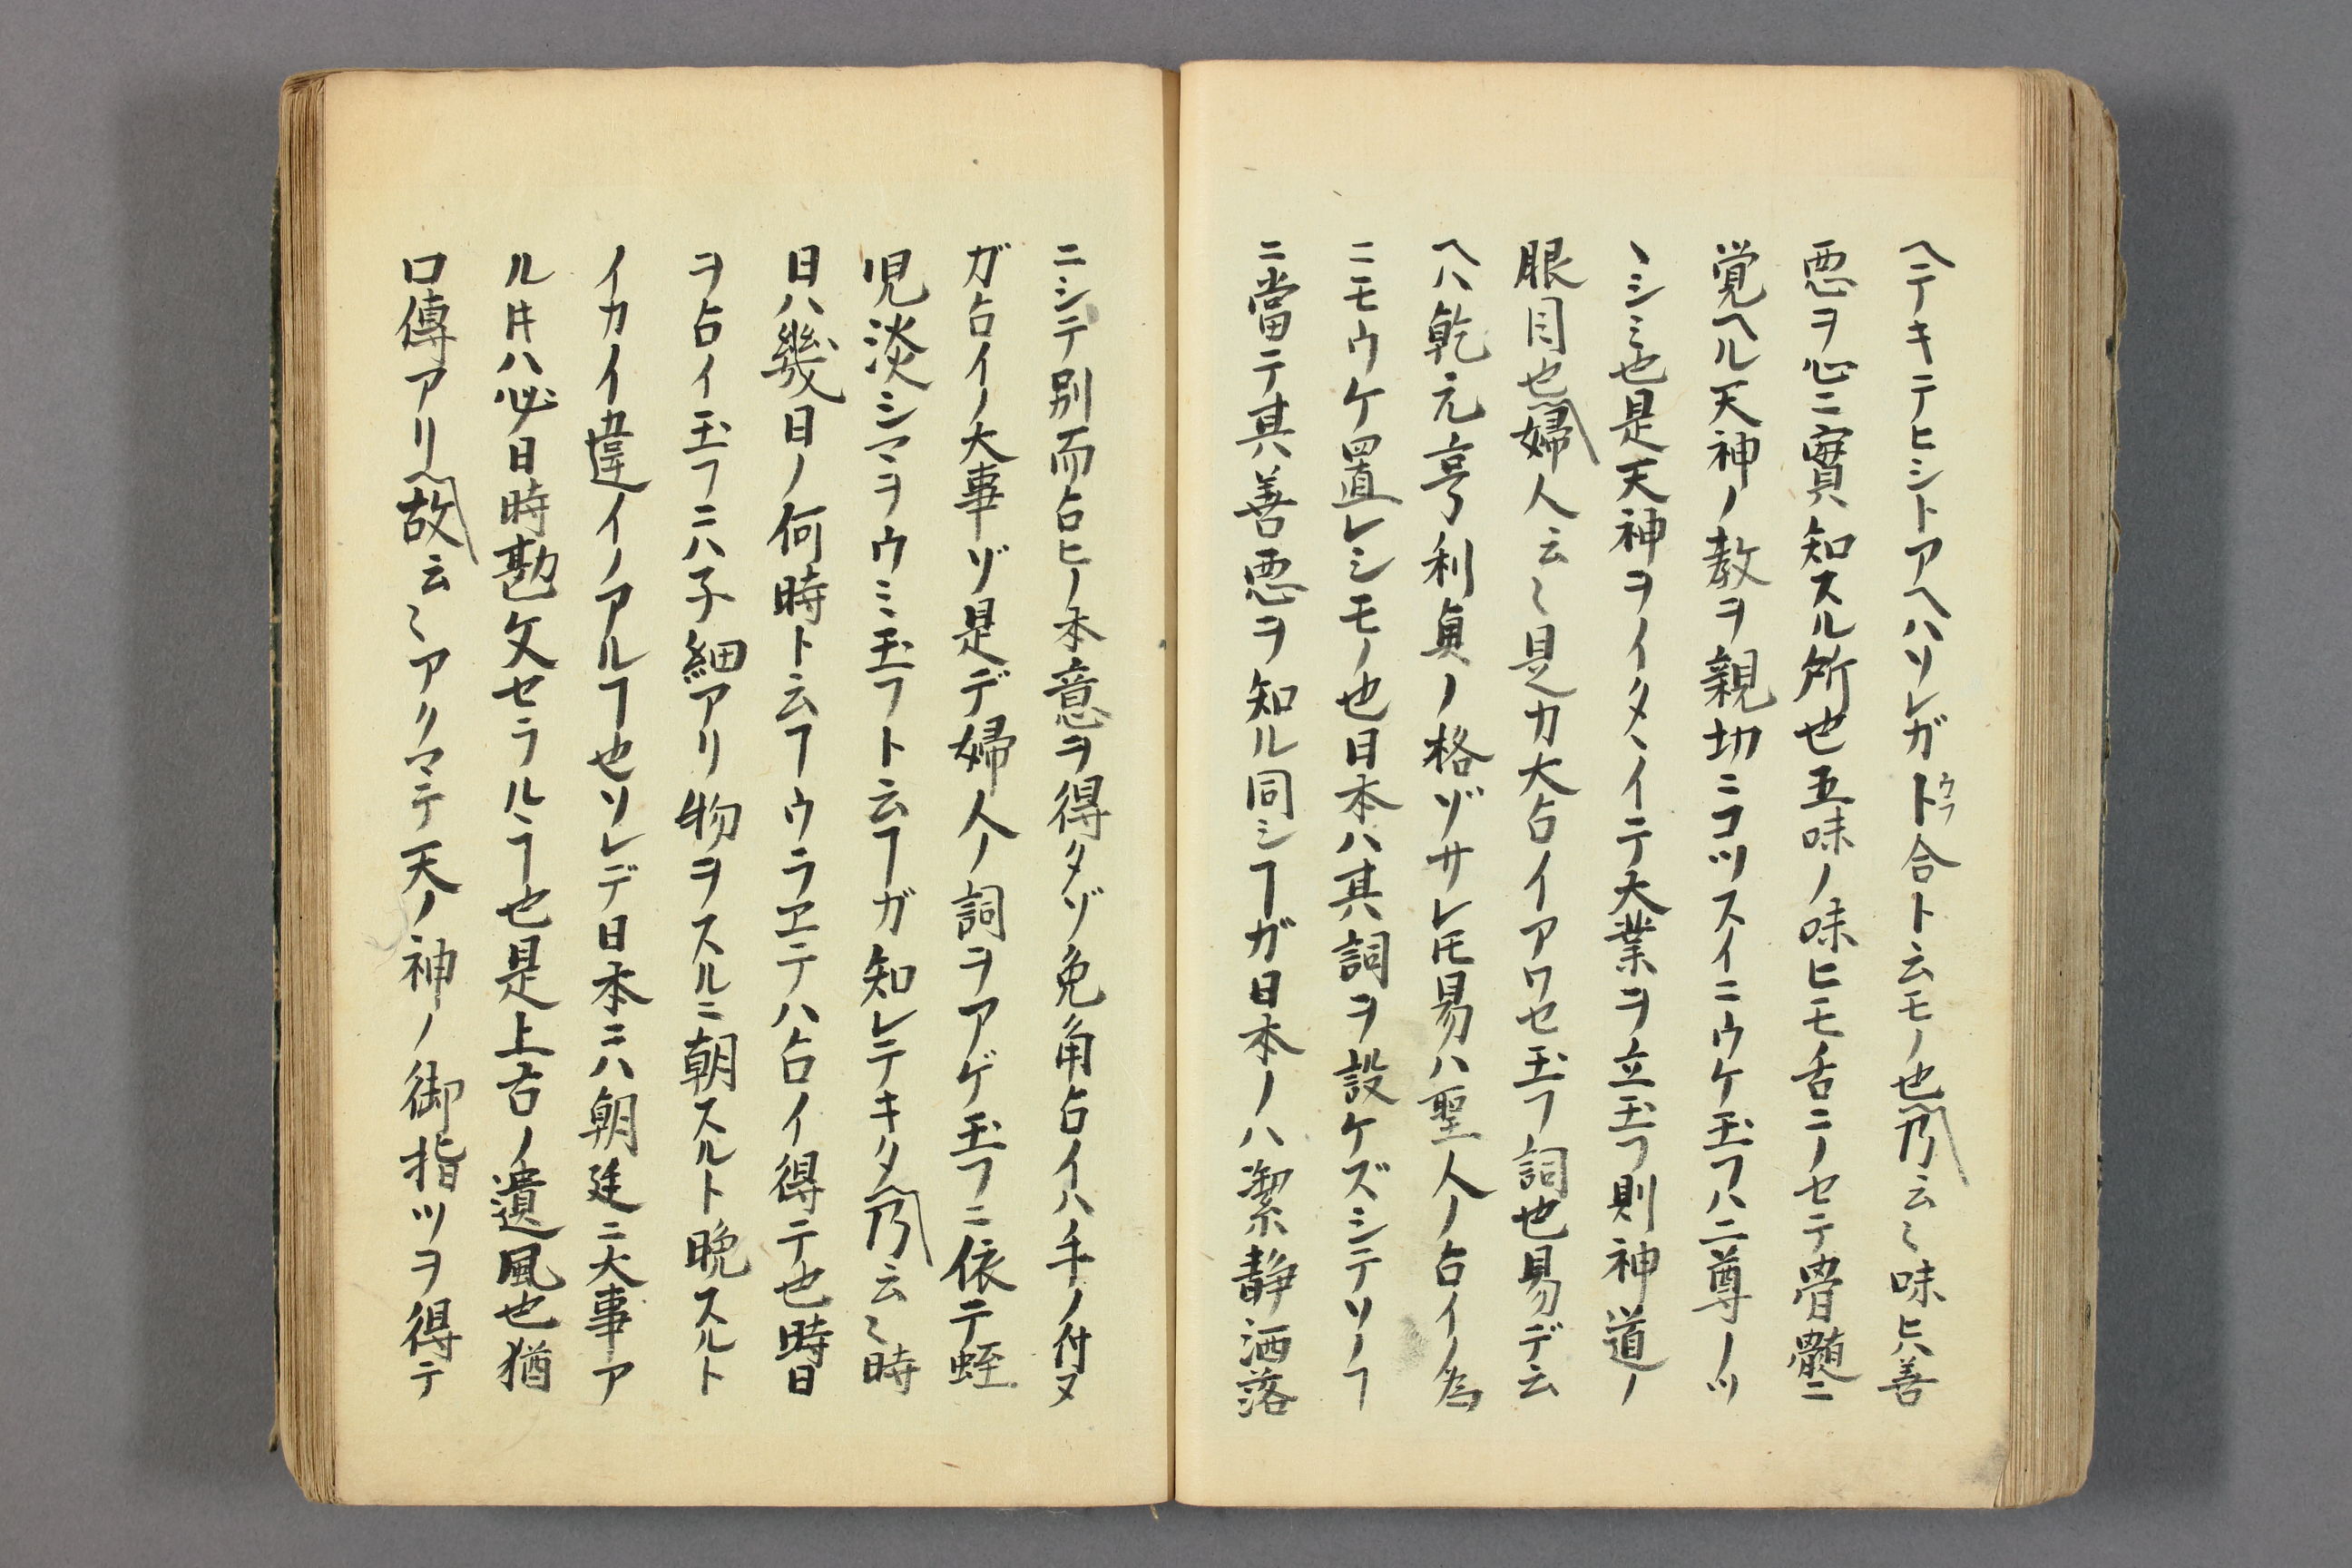 ヘテキテヒシトアヘハソレガト合ト云モノ也乃云〻味ヒハ善
悪ヲ心ニ實知スル所也五味ノ味ヒモ舌ニノセテ骨髄ニ
覚ヘル天神ノ教ヲ親切ニコツスイニウケ玉フハ二尊ノツ
ヽシミ也是天神ヲイタヽイテ大業ヲ立玉フ則神道ノ
眼目也婦人云〻是カ大占イアワセ玉フ詞也易デ云
ヘハ乾元亨利貞ノ格ゾサレ𪜈易ハ聖人ノ占イノ為
ニモウケ置レシモノ也日本ハ其詞ヲ設ケズシテソノヿ
ニ當テ其善悪ヲ知ル同シヿガ日本ノハ潔静洒落
ニシテ別而占ヒノ本意ヲ得タゾ兔角占イハ手ノ付ヌ
ガ占イノ大事ゾ是デ婦人ノ詞ヲアゲ玉フニ依テ蛭
児淡シマヲウミ玉フト云ヿガ知レテキタ乃云〻時
日ハ幾日ノ何時ト云ヿウラヱテハ占イ得テ也時日
ヲ占イ玉フニハ子細アリ物ヲスルニ朝スルト晩スルト
イカイ違イノアルヿ也ソレデ日本ニハ朝廷ニ大事ア
ル𪜈ハ必日時勘文セラルヽヿ也是上古ノ遺風也猶
口傳アリ故云〻アクマテ天ノ神ノ御指ツヲ得テ